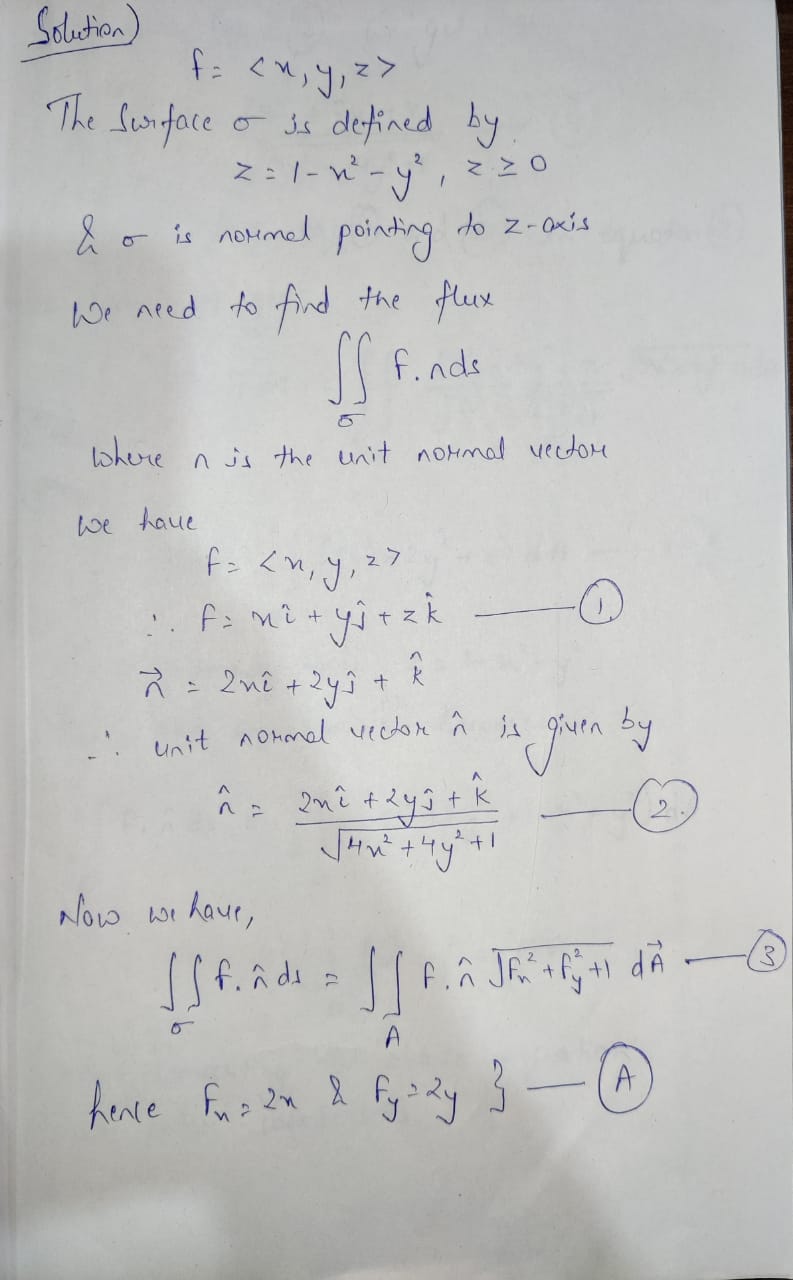 Solution)
f = <x, y, z>
The Surface σ is defined by
z = 1 - x² - y², z ≥ 0
& σ is normal pointing to z-axis
We need to find the flux
∬_σ f.nds
where n is the unit normal vector
we have
f = <x, y, z>
∴ f = xî + yĵ + zk̂ —— ①
n⃗ = 2xî + 2yĵ + k̂
∴ unit normal vector n̂ is given by
n̂ = (2xî + 2yĵ + k̂)/√(4x² + 4y² + 1) —— ②
Now we have,
∬_σ f.n̂ ds = ∬_A F.n̂ √(fx² + fy² + 1) dA⃗ —— ③
hence Fx = 2x & fy = 2y } —— Ⓐ